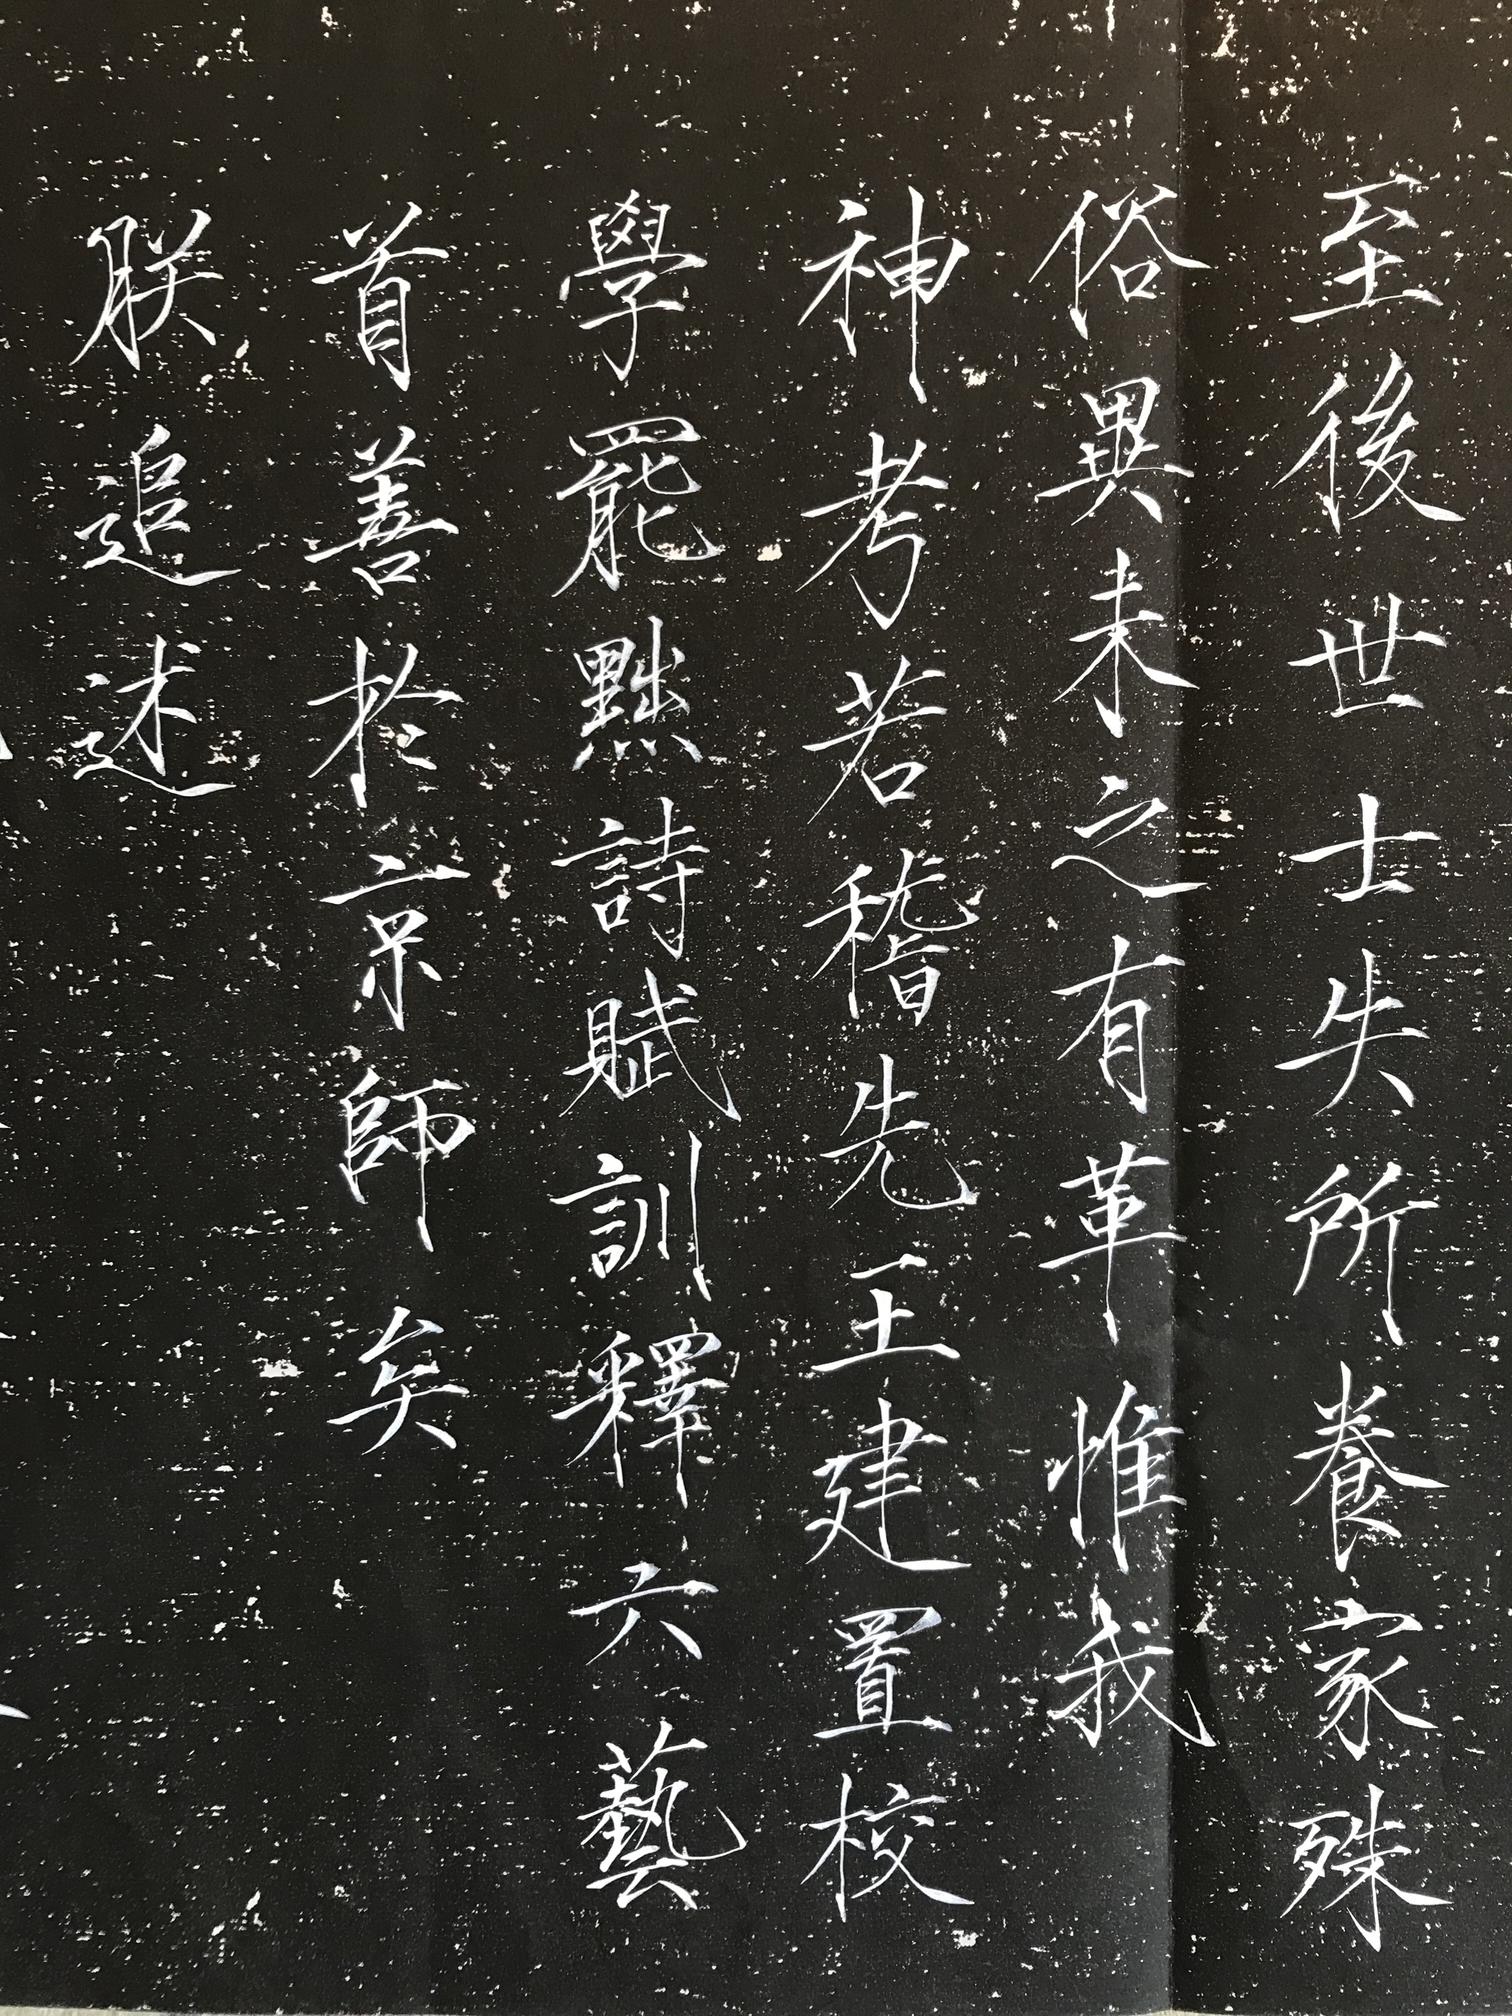 至後世士失所養家殊
俗異未之有革惟我
神考若稽先王建置校
學罷黜詩賦訓釋六藝
首善於京師矣
朕追述